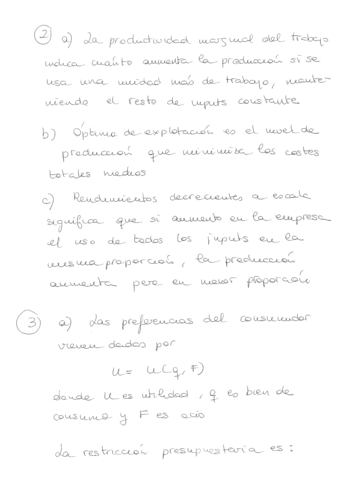 ② a) La productividad marginal del trabajo
indica cuánto aumenta la producción si se
usa una unidad más de trabajo, mante-
niendo el resto de inputs constante
b) Óptimo de explotación es el nivel de
producción que minimiza los costes
totales medios
c) Rendimientos decrecientes a escala
significa que si aumento en la empresa
el uso de todos los inputs en la
misma proporción, la producción
aumenta pero en menor proporción
③ a) Las preferencias del consumidor
vienen dadas por
U = U(q, F)
donde U es utilidad, q es bien de
consumo y F es ocio
La restricción presupuestaria es: